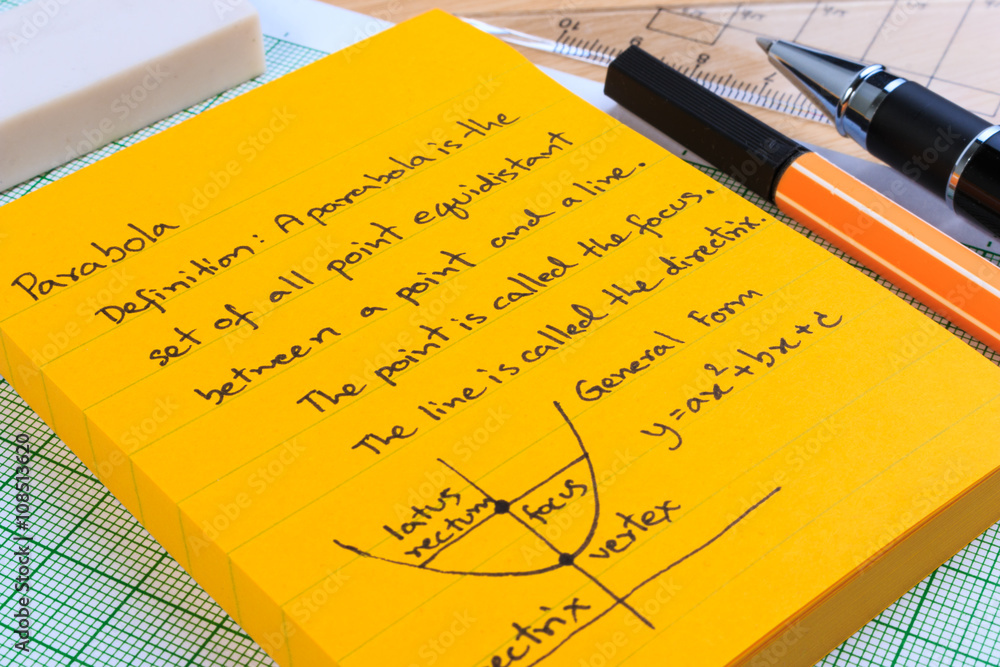 Parabola
Definition: A parabola is the
set of all point equidistant
between a point and a line.
The point is called the focus.
The line is called the directrix.
General Form
y=ax²+bx+c
latus
rectum
focus
vertex
ectrix
10
9
8
7
Adobe Stock | #108513620